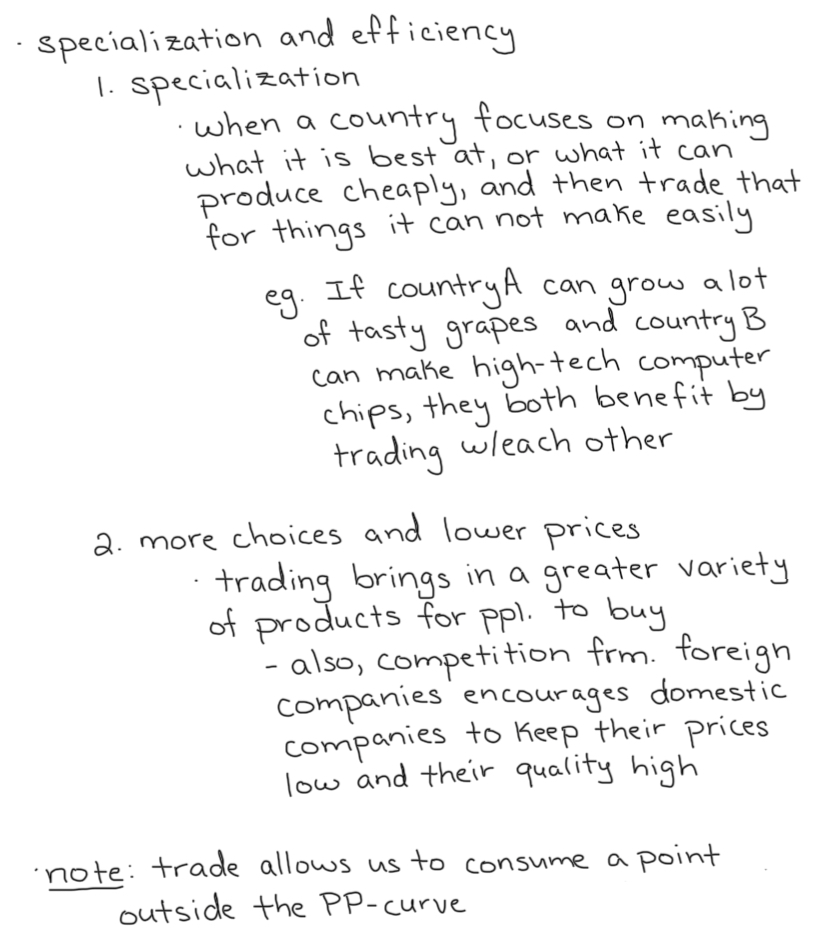 · specialization and efficiency
1. specialization
· when a country focuses on making
what it is best at, or what it can
produce cheaply, and then trade that
for things it can not make easily
eg. If country A can grow a lot
of tasty grapes and country B
can make high-tech computer
chips, they both benefit by
trading w/each other
2. more choices and lower prices
· trading brings in a greater variety
of products for ppl. to buy
- also, competition frm. foreign
companies encourages domestic
companies to keep their prices
low and their quality high
· note: trade allows us to consume a point
outside the PP-curve